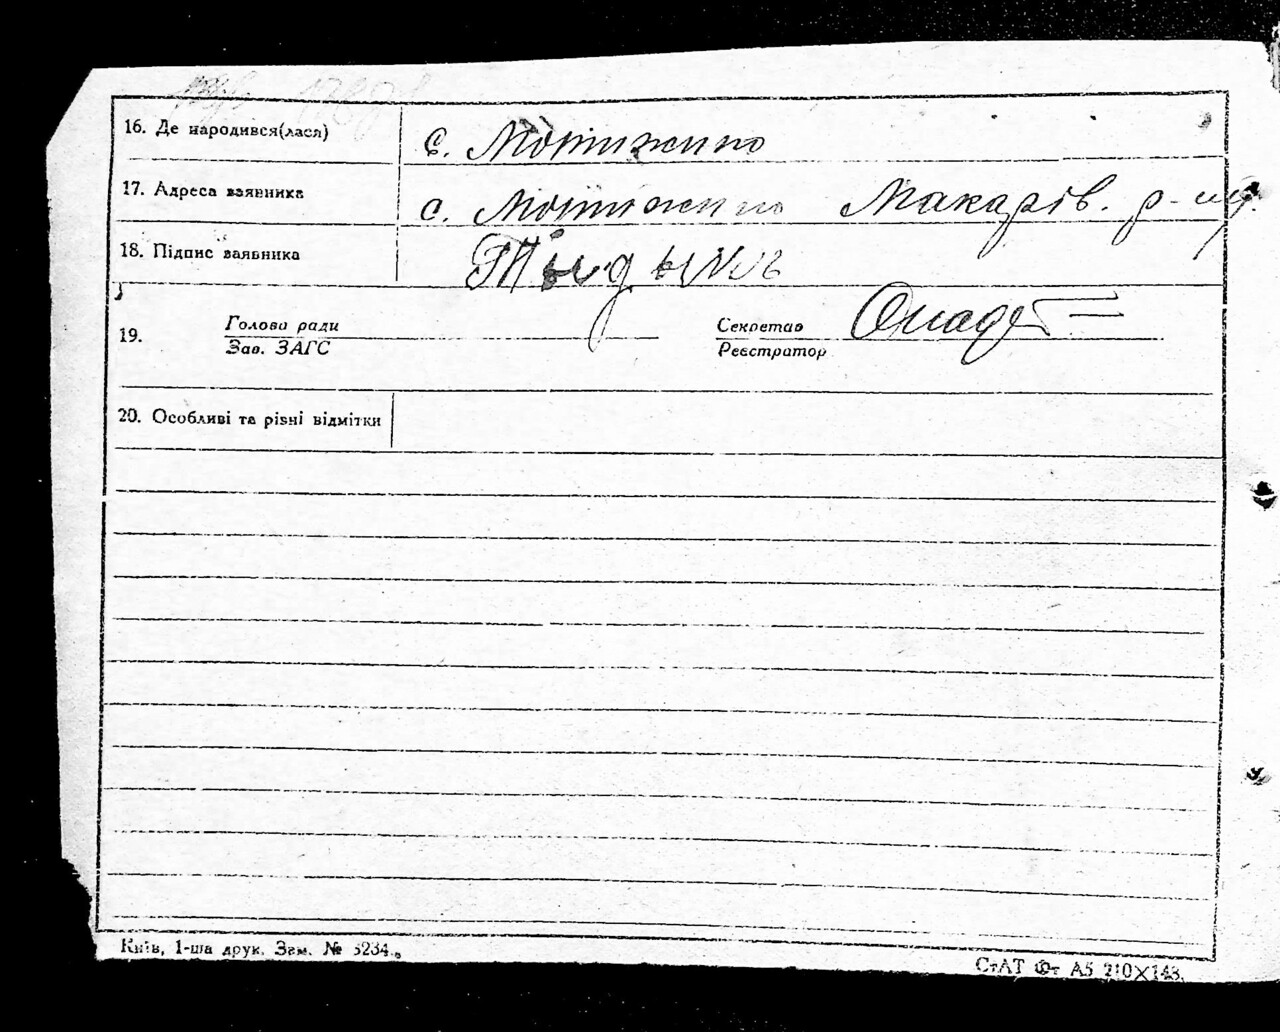 16. Де народився(лася) с. Мотижино
17. Адреса заявника с. Мотижино Макарів. р-ну.
18. Підпис заявника
19. Голова ради Секретар
Зав. ЗАГС Реєстратор
20. Особливі та різні відмітки
Київ, 1-ша друк. Зам. № 5234.
СтАТ Фт А5 210×148.